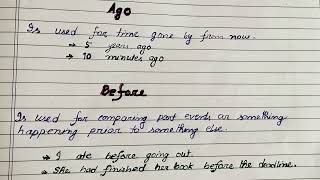 Ago
Is used for time gone by from now.
→ 5 years ago
→ 10 minutes ago
Before
Is used for comparing past events or something
happening prior to something else.
→ I ate before going out.
→ She had finished her book before the deadline.